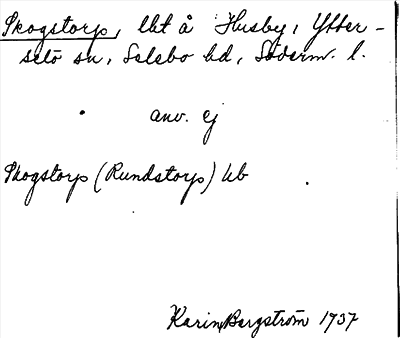 Skogstorp, lht å Husby, Ytter-
selö sn, Selebo hd, Söderm. l.
anv. ej
Skogstorp (Rundstorp) kb
Karin Bergström 1937